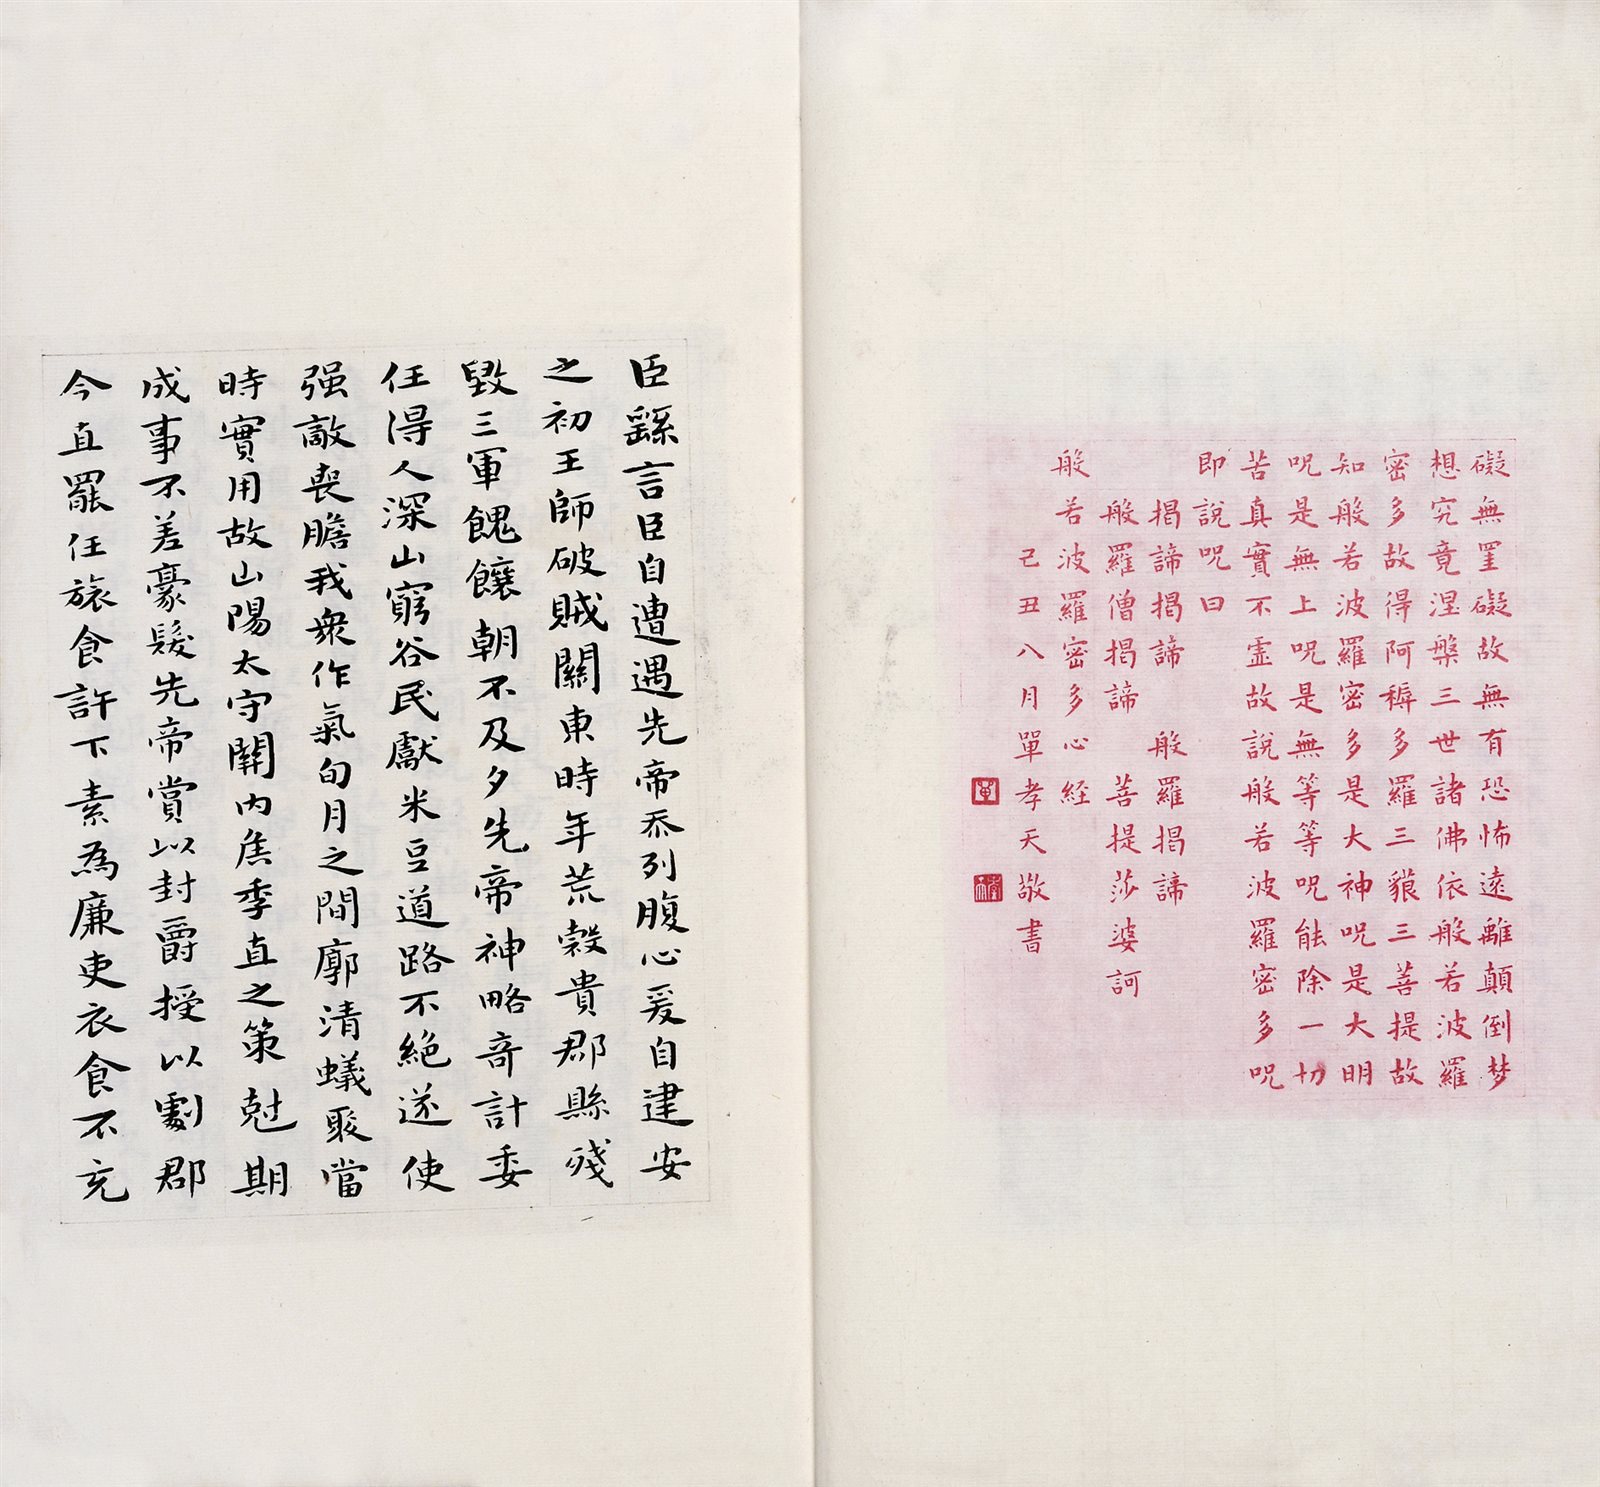 礙無罣礙故無有恐怖遠離顛倒梦
想究竟涅槃三世諸佛依般若波羅
密多故得阿耨多羅三藐三菩提故
知般若波羅密多是大神呪是大明
呪是無上呪是無等等呪能除一切
苦真實不虛故說般若波羅密多呪
即說呪曰
揭諦揭諦　般羅揭諦
般羅僧揭諦　菩提莎婆訶
般若波羅密多心経
己丑八月單孝天敬書
單
孝天
臣繇言臣自遭遇先帝忝列腹心爰自建安
之初王師破賊關東時年荒穀貴郡縣殘
毀三軍餽饟朝不及夕先帝神略奇計委
任得人深山窮谷民獻米豆道路不絕遂使
强敵喪膽我衆作氣旬月之間廓清蟻聚當
時實用故山陽太守關內侯季直之策尅期
成事不差豪髮先帝賞以封爵授以劇郡
今直罷任旅食許下素為廉吏衣食不充